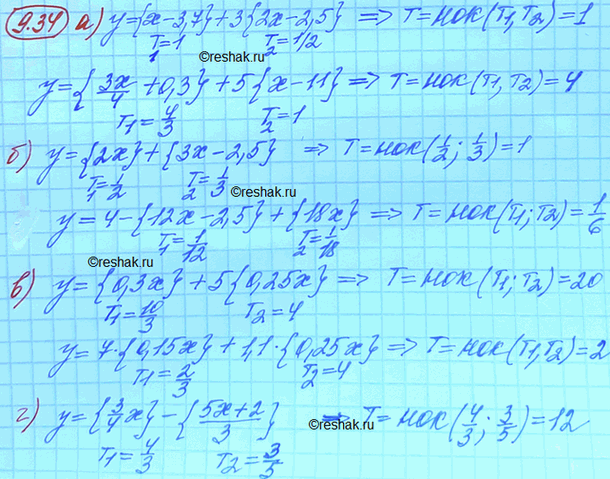 9.34 а) y={x-3,7}+3{2x-2,5} => T=НОК(T1,T2)=1
T1=1 T2=1/2
©reshak.ru
y={3x/4+0,3}+5{x-11} => T=НОК(T1,T2)=4
T1=4/3 T2=1
б) y={2x}+{3x-2,5} => T=НОК(1/2;1/3)=1
T1=1/2 T2=1/3
©reshak.ru
y=4-{12x-2,5}+{18x} => T=НОК(T1;T2)=1/6
T1=1/12 T2=1/18
©reshak.ru
в) y={0,3x}+5{0,25x} => T=НОК(T1;T2)=20
T1=10/3 T2=4
y=7·{0,15x}+1,1·{0,25x} => T=НОК(T1,T2)=2
T1=2/3 T2=4
г) y={3/4x}-{5x+2/3} => T=НОК(4/3;3/5)=12
©reshak.ru
T1=4/3 T2=3/5